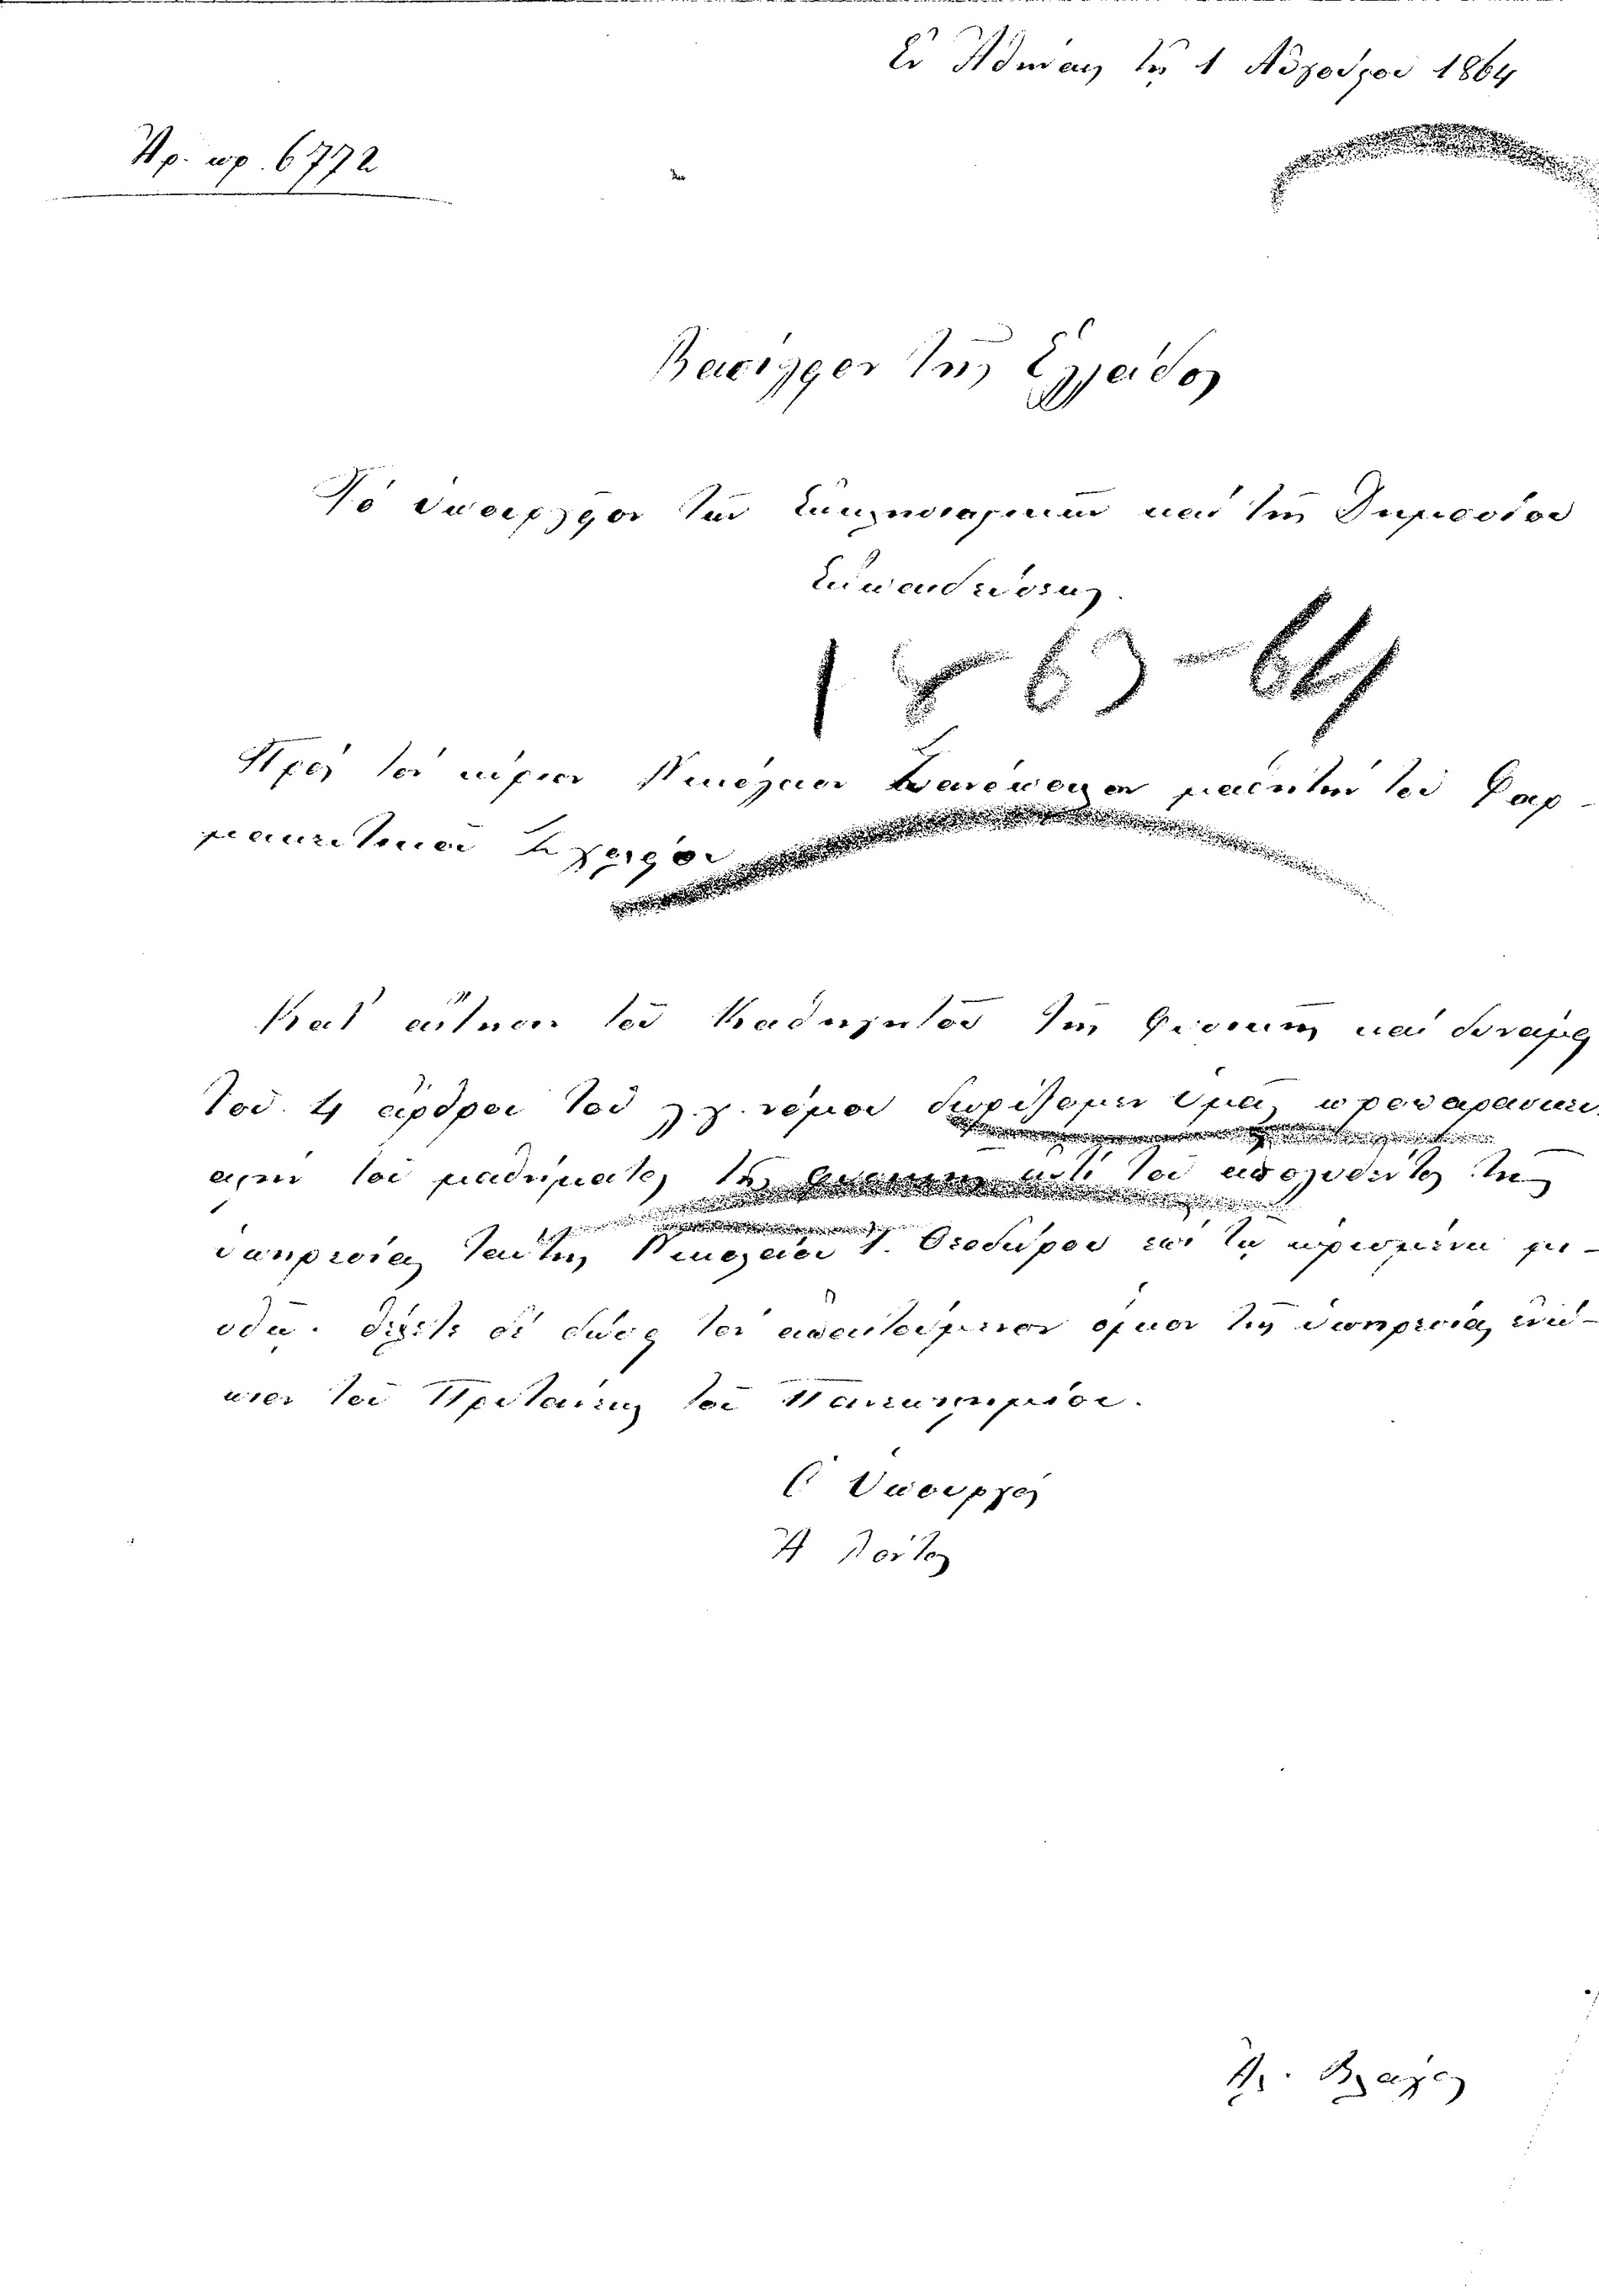 Ἐν Ἀθήναις τῇ 1 Αὐγούστου 1864
Ἀρ. πρ. 6772
Βασίλειον τῆς Ἑλλάδος
Τὸ ὑπουργεῖον τῶν Ἐκκλησιαστικῶν καὶ τῆς Δημοσίου
Ἐκπαιδεύσεως.
1863-64
Πρὸς τὸν κύριον Νικόλαον μαθητὴν τοῦ Φαρ-
μακευτικοῦ Σχολείου
Κατ' αἴτησιν τοῦ Καθηγητοῦ τῆς Φυσικῆς καὶ δυνάμει
τοῦ 4 ἄρθρου τοῦ νόμου διορίζομεν ὑμᾶς παρασκευ
αστὴν τοῦ μαθήματος τῆς φυσικῆς ἀντὶ τοῦ ἀπολυθέντος τῆς
ὑπηρεσίας ταύτης Νικολάου Ι. Θεοδώρου ἐπὶ τῷ ὡρισμένῳ μι-
σθῷ. δίδετε δὲ τὸν ἀπαιτούμενον ὅρκον τῆς ὑπηρεσίας ἐνώ-
πιον τοῦ Πρυτάνεως τοῦ Πανεπιστημίου.
Ὁ Ὑπουργὸς
Βλάχος